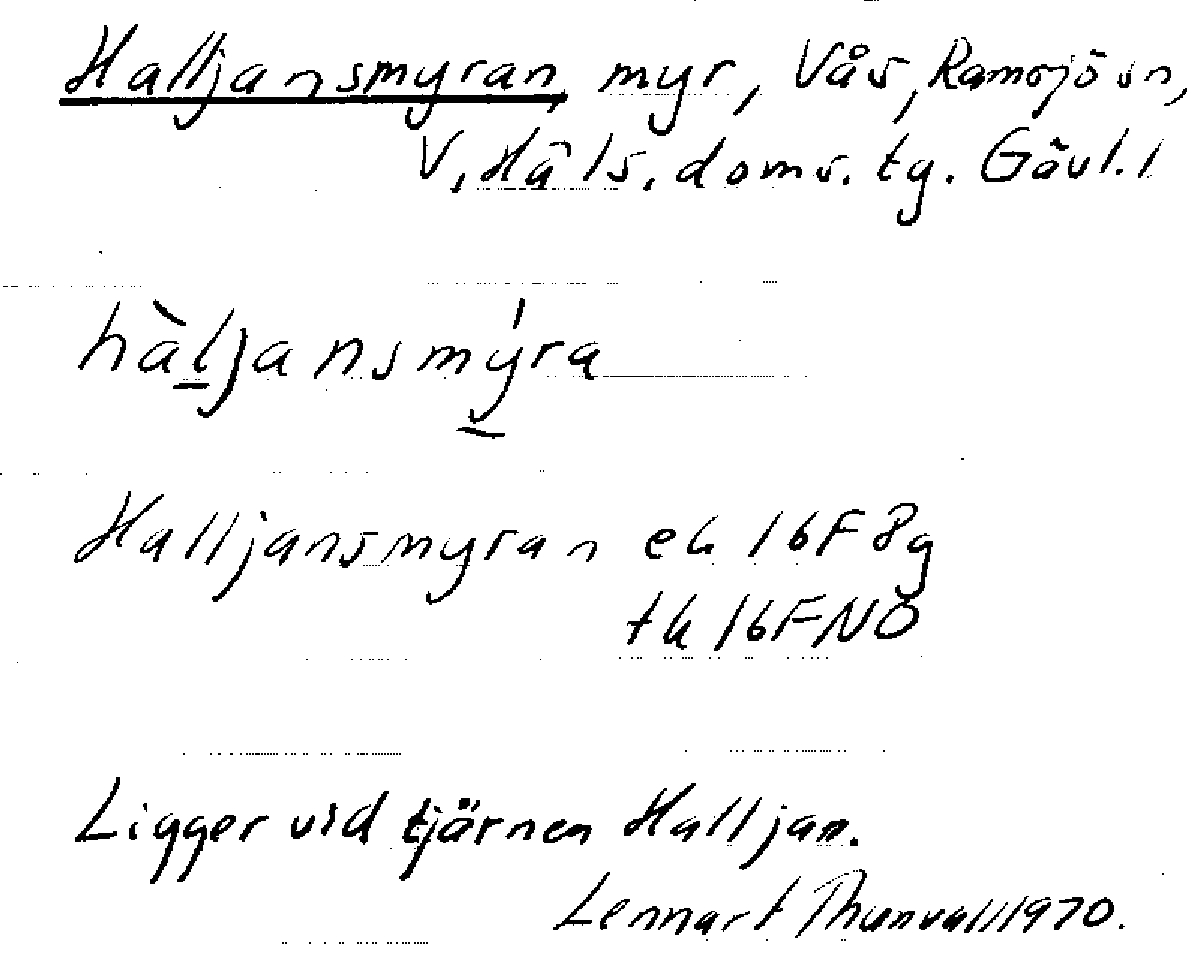 Halljansmyran, myr, Vås, Ramsjö sn,
V. Häls. doms. tg. Gävl. l
hàl̲jansmý̲ra
Halljansmyran ek 16F8g
tk 16FNO
Ligger vid tjärnen Halljan.
Lennart Thunvall 1970.